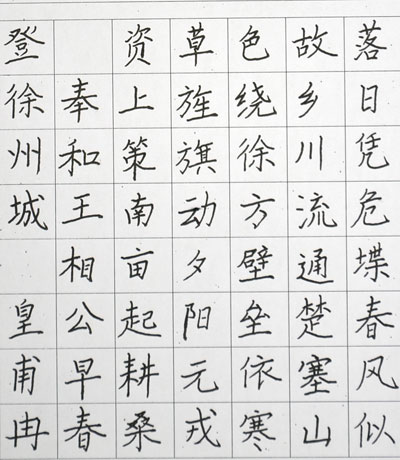 落日凭危堞春风似
故乡川流通楚塞山
色绕徐方壁垒依寒
草旌旗动夕阳元戎
资上策南亩起耕桑
奉和王相公早春
登徐州城 皇甫冉